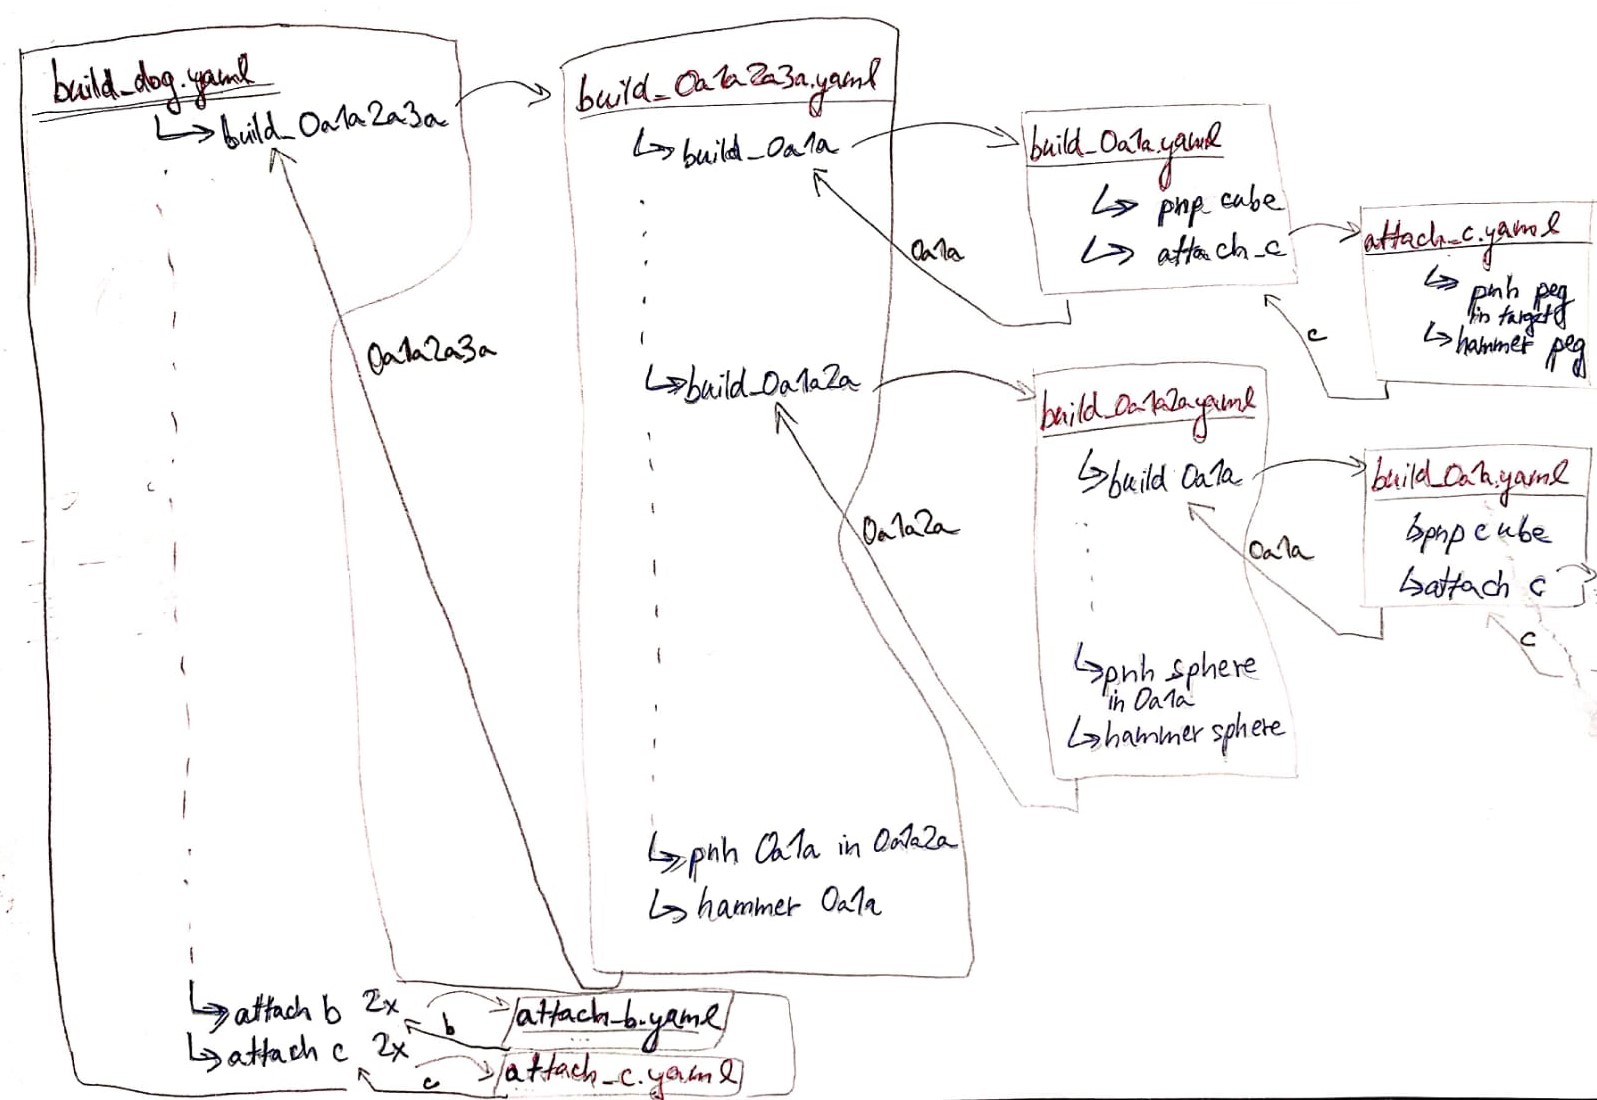 build_dog.yaml
↳ build_0a1a2a3a
0a1a2a3a
↳ attach b 2x
b
↳ attach c 2x
c
attach_b.yaml
...
attach_c.yaml
build_0a1a2a3a.yaml
↳ build_0a1a
0a1a
↳ build_0a1a2a
0a1a2a
↳ pnh 0a1a in 0a1a2a
↳ hammer 0a1a
build_0a1a.yaml
↳ pnp cube
↳ attach_c
c
attach_c.yaml
↳ pnh peg
in target
↳ hammer peg
build_0a1a2a.yaml
↳ build 0a1a
0a1a
↳ pnh sphere
in 0a1a
↳ hammer sphere
build_0a1a.yaml
↳ pnp cube
↳ attach c
c